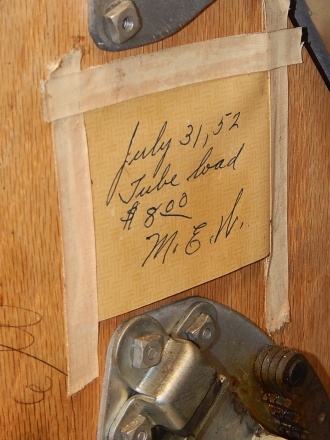 July 31, 52
Tube load
$8.00
M. E. W.